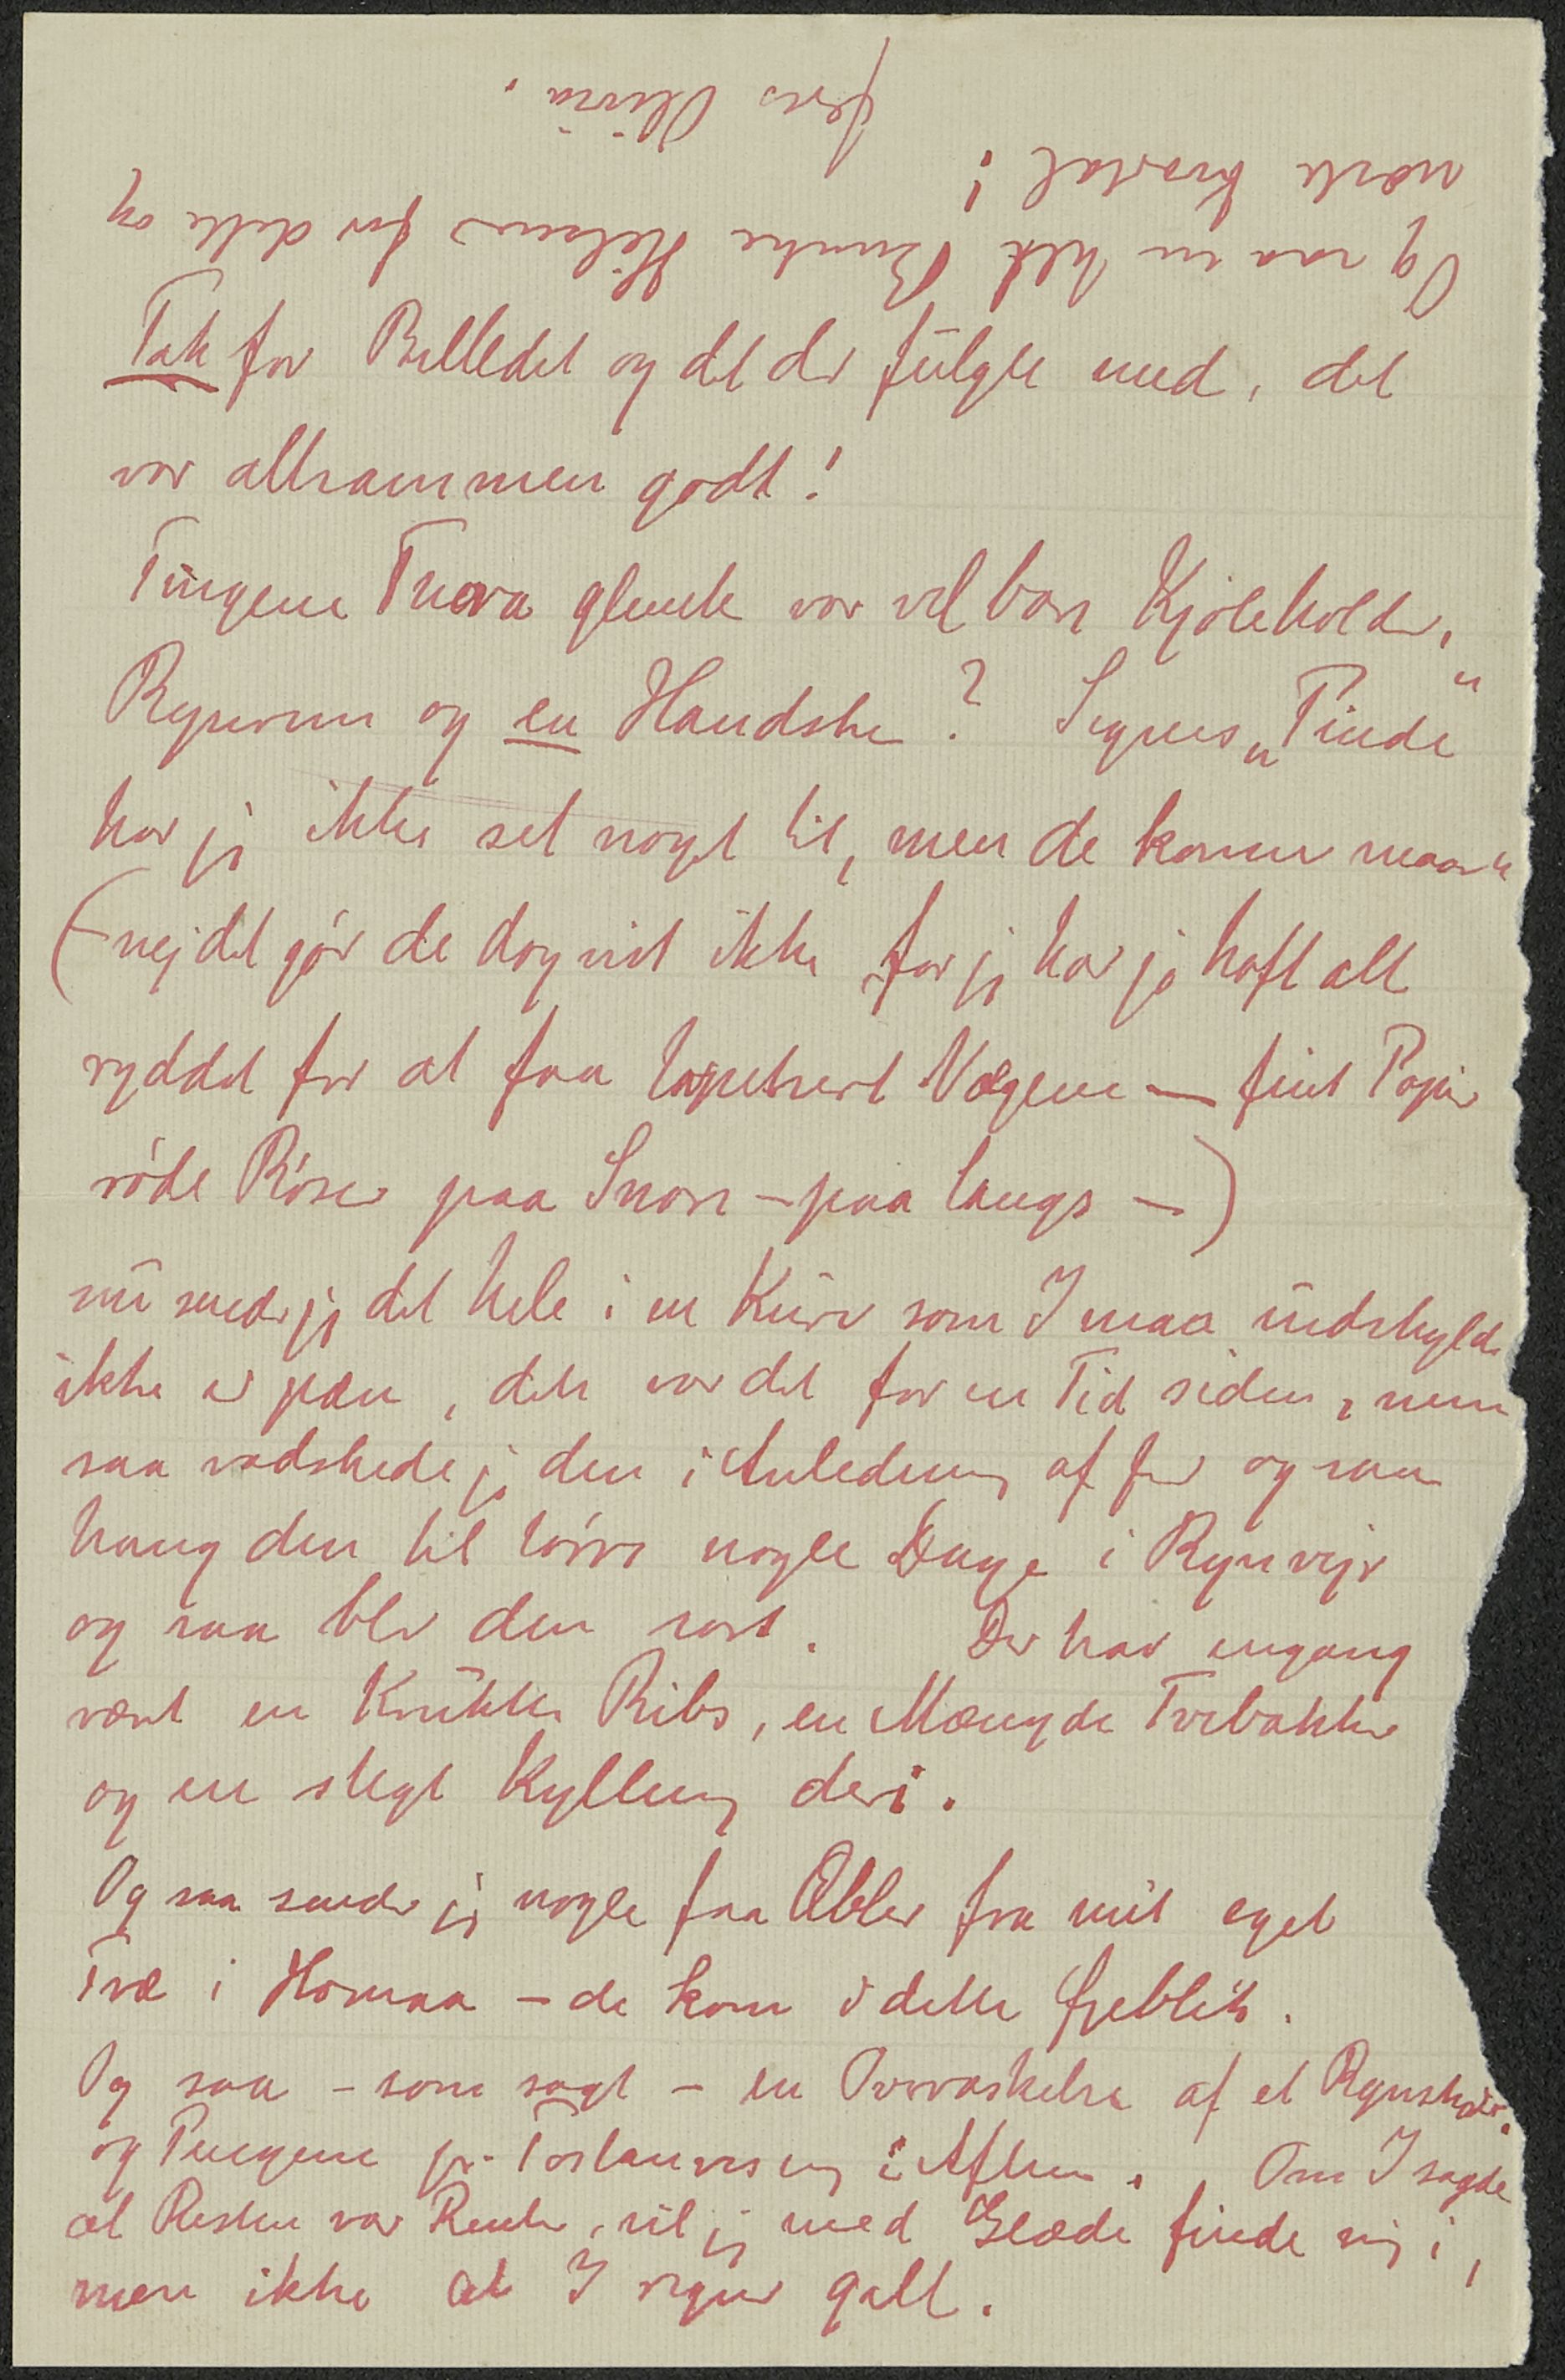 Tak for Billedet og det der fulgte med, det
var altsammen godt!
Tingene Thora glemte var vel bare Kjoleholder,
Regnorm og en Handske? Signes „Tinde“
har jeg ikke set noget til, men de komme maaske
(- nej det gør de dog vist ikke for jeg har jo haft alt
ryddet for at faa tapetseret Vægene — fint Papir
røde Roser paa Snore - paa langs -)
nu sender jeg det hele i en Kurv som I maa undskylde
ikke er pæn, den var det for en Tid siden, men
saa vadskede jeg den i Anledning af før og saa
hang den til tørre nogle Dage i Regnvejr
og saa blev den sort. Der har engang
været en Krukke Ribs, en Mængde Tvebakker
og en stegt Kylling deri.
Og saa sender jeg nogle faa Æbler fra mit eget
Træ i Homaa - de kom i dette Øjeblik.
Og saa - som sagt - en Overraskelse af et Regnskab.
og Pengene pr. Postanvisning i Aften. Om I sagde
at Resten var Rente, vil jeg med Glæde finde mig i,
men ikke at I regner galt.
Og saa en hel Bunke Hilsener for dette og
næste Kvartal!
Jeres Olivia.